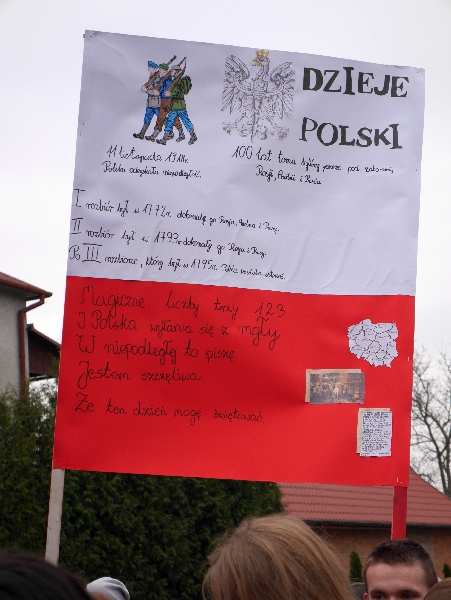 DZIEJE
POLSKI
11 listopada 1918r.
Polska odzyskała niepodległość.
100 lat temu byliśmy jeszcze pod zaborami
Rosji, Austrii i Prus
I rozbiór był w 1772r. dokonały go Rosja, Austria i Prusy.
II rozbiór był w 1793r. dokonały go Rosja i Prusy.
Po III rozbiorze, który był w 1795r. Polska przestała istnieć.
Magiczne liczby trzy 123
I Polska wyłania się z mgły
W niepodległą to piszę
Jestem szczęśliwa
Że ten dzień mogę świętować.